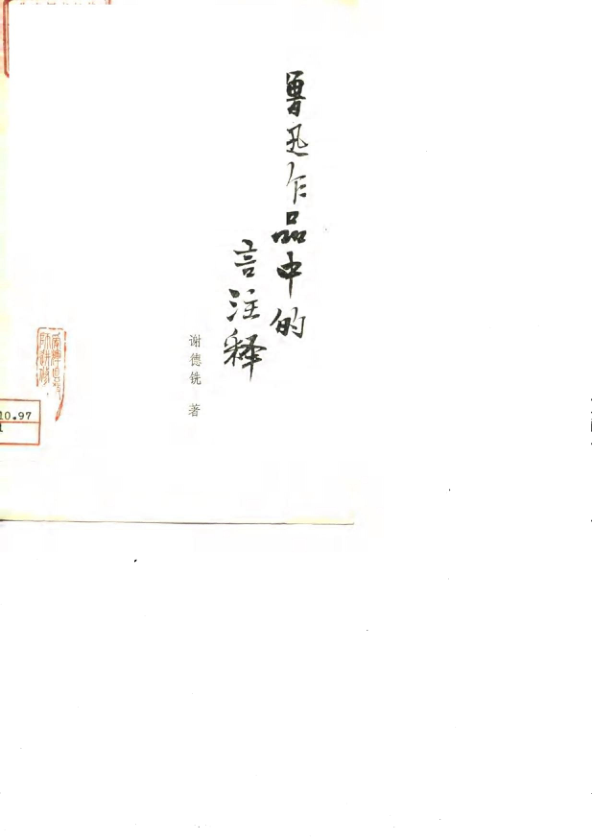 鲁迅作品中的
言注释
谢德铣 著
10.97
1